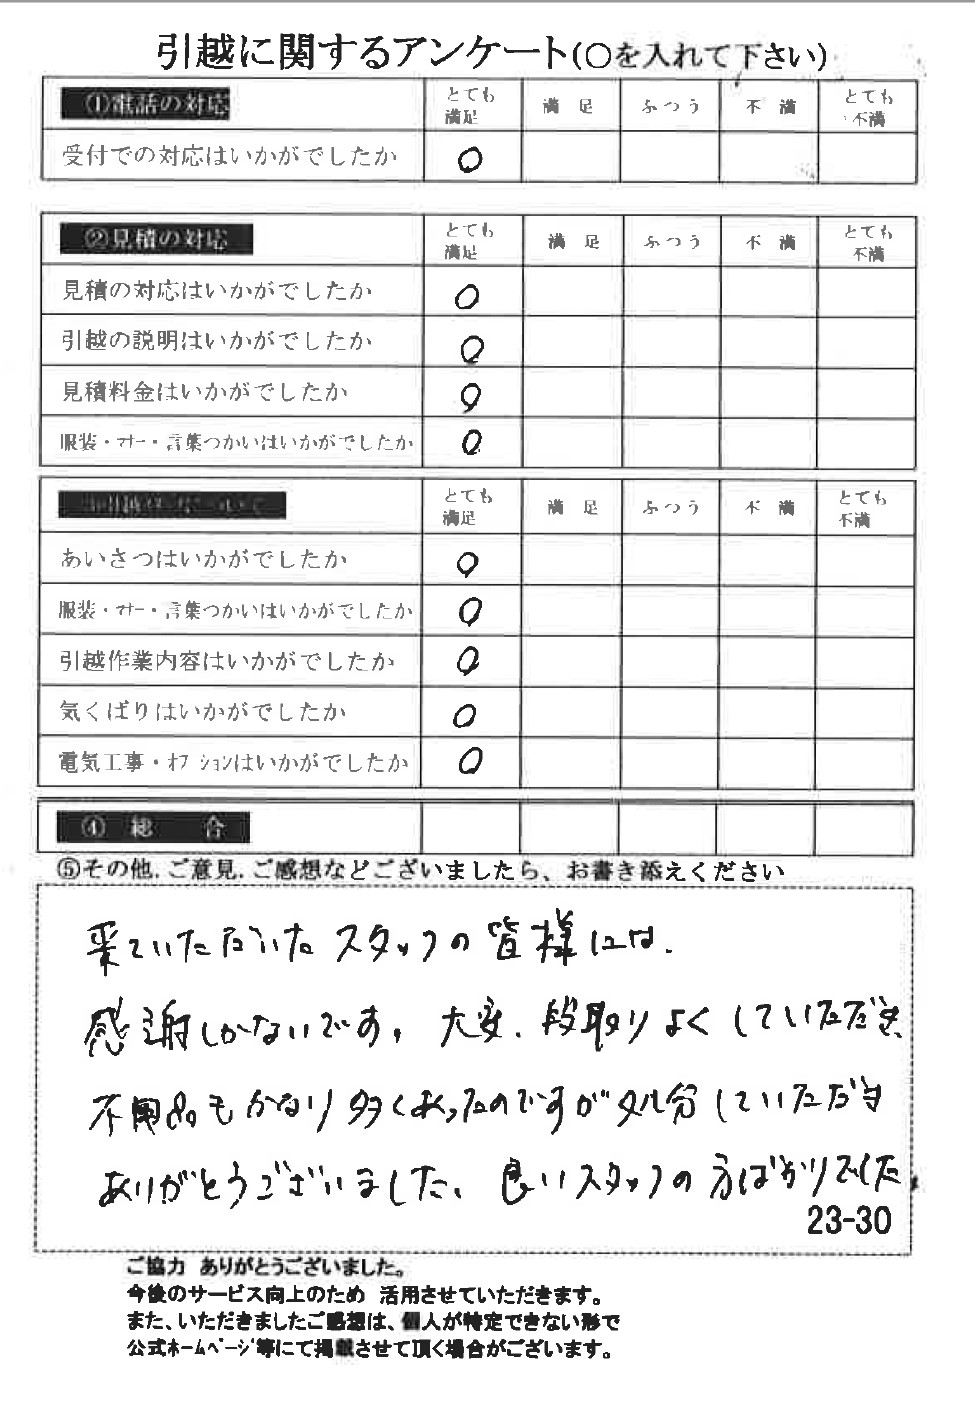 引越に関するアンケート(○を入れて下さい)
①電話の対応 とても満足 満足 ふつう 不満 とても不満
受付での対応はいかがでしたか ○
②見積の対応 とても満足 満足 ふつう 不満 とても不満
見積の対応はいかがでしたか ○
引越の説明はいかがでしたか ○
見積料金はいかがでしたか ○
服装・マナー・言葉つかいはいかがでしたか ○
とても満足 満足 ふつう 不満 とても不満
あいさつはいかがでしたか ○
服装・マナー・言葉つかいはいかがでしたか ○
引越作業内容はいかがでしたか ○
気くばりはいかがでしたか ○
電気工事・オプションはいかがでしたか ○
④ 総 合
⑤その他、ご意見、ご感想などございましたら、お書き添えください
来ていただいたスタッフの皆様には、
感謝しかないです。大変、段取りよくしていただき、
不用品もかなり多くあったのですが処分していただき
ありがとうございました。良いスタッフの方ばかりでした。
23-30
ご協力 ありがとうございました。
今後のサービス向上のため 活用させていただきます。
また、いただきましたご感想は、個人が特定できない形で
公式ホームページ等にて掲載させて頂く場合がございます。